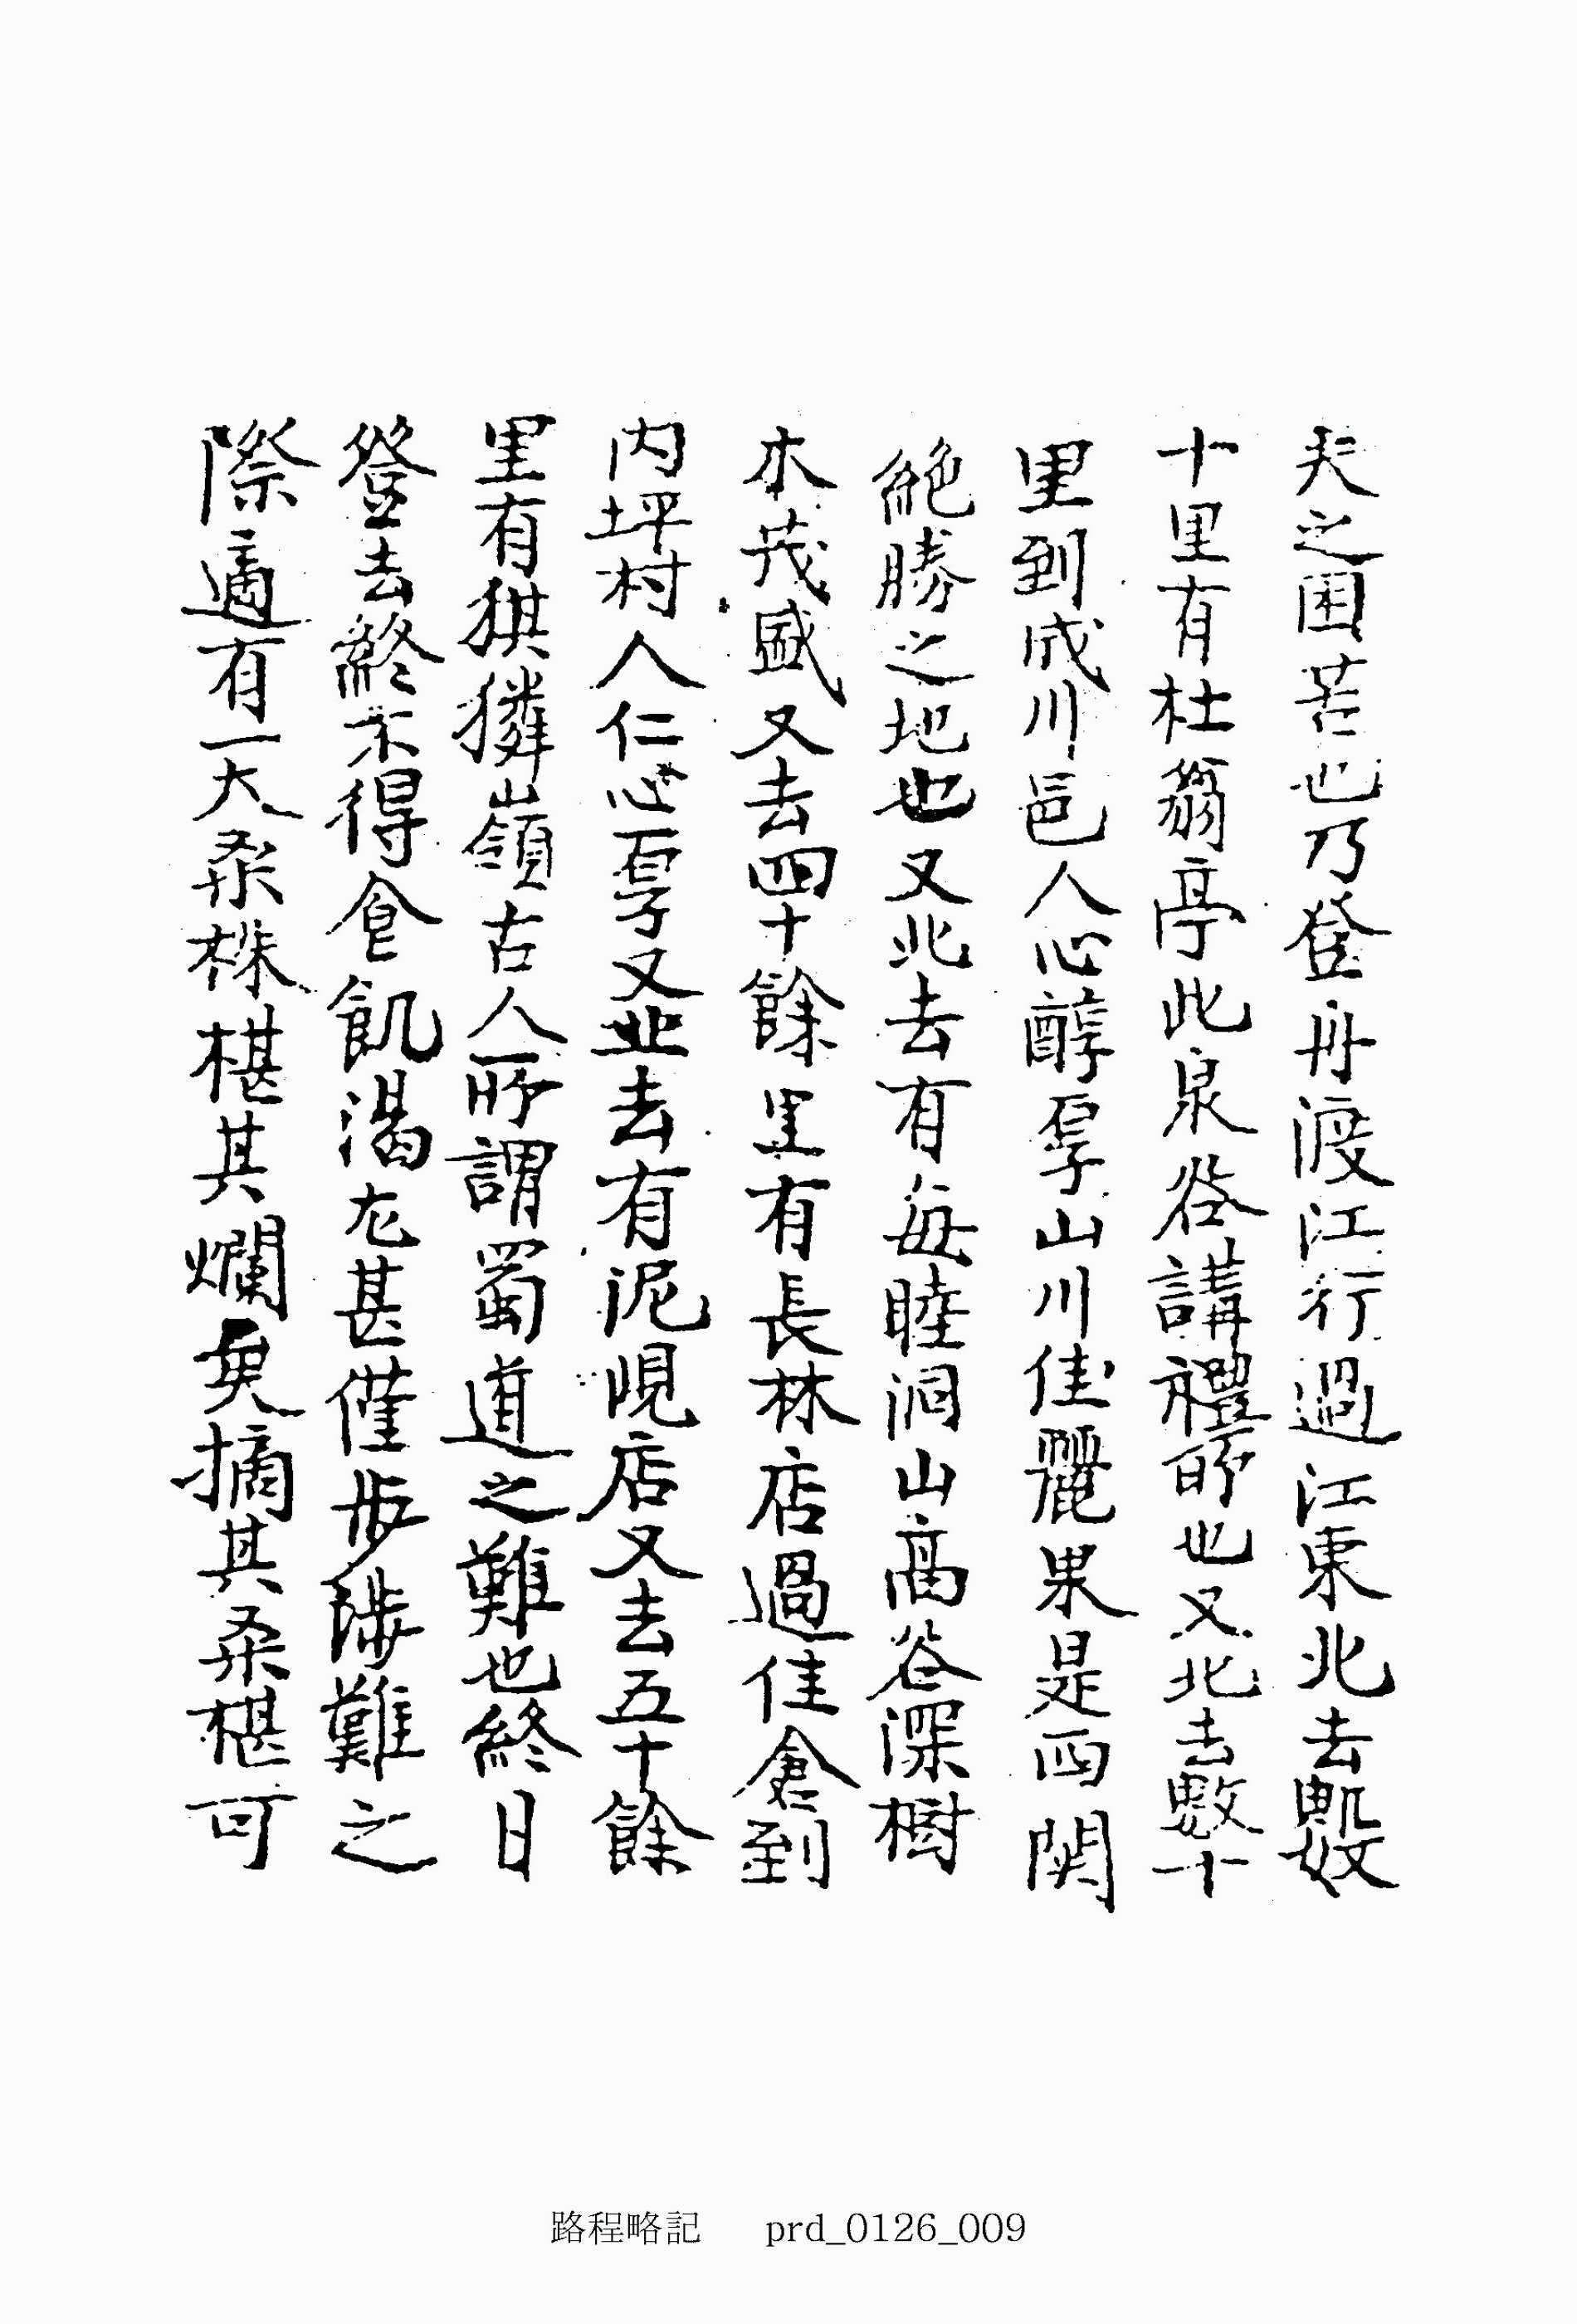 天之困苦也乃登舟渡江行過江東北去數
十里有杜翁亭此泉谷講禮所也又北去數十
里到成川邑人心醇厚山川佳麗果是四関
絶勝之地也又北去有每睦洞山高谷深樹
木茂盛又去四十餘里有長林店過佳倉到
内坪村人仁心厚又北去有泥峴店又去五十餘
里有猉獜嶺古人所謂蜀道之難也終日
登去終不得食飢渴尤甚僅步陟難之
際適有一大桑株椹其爛矣摘其桑椹可
路程略記 prd_0126_009